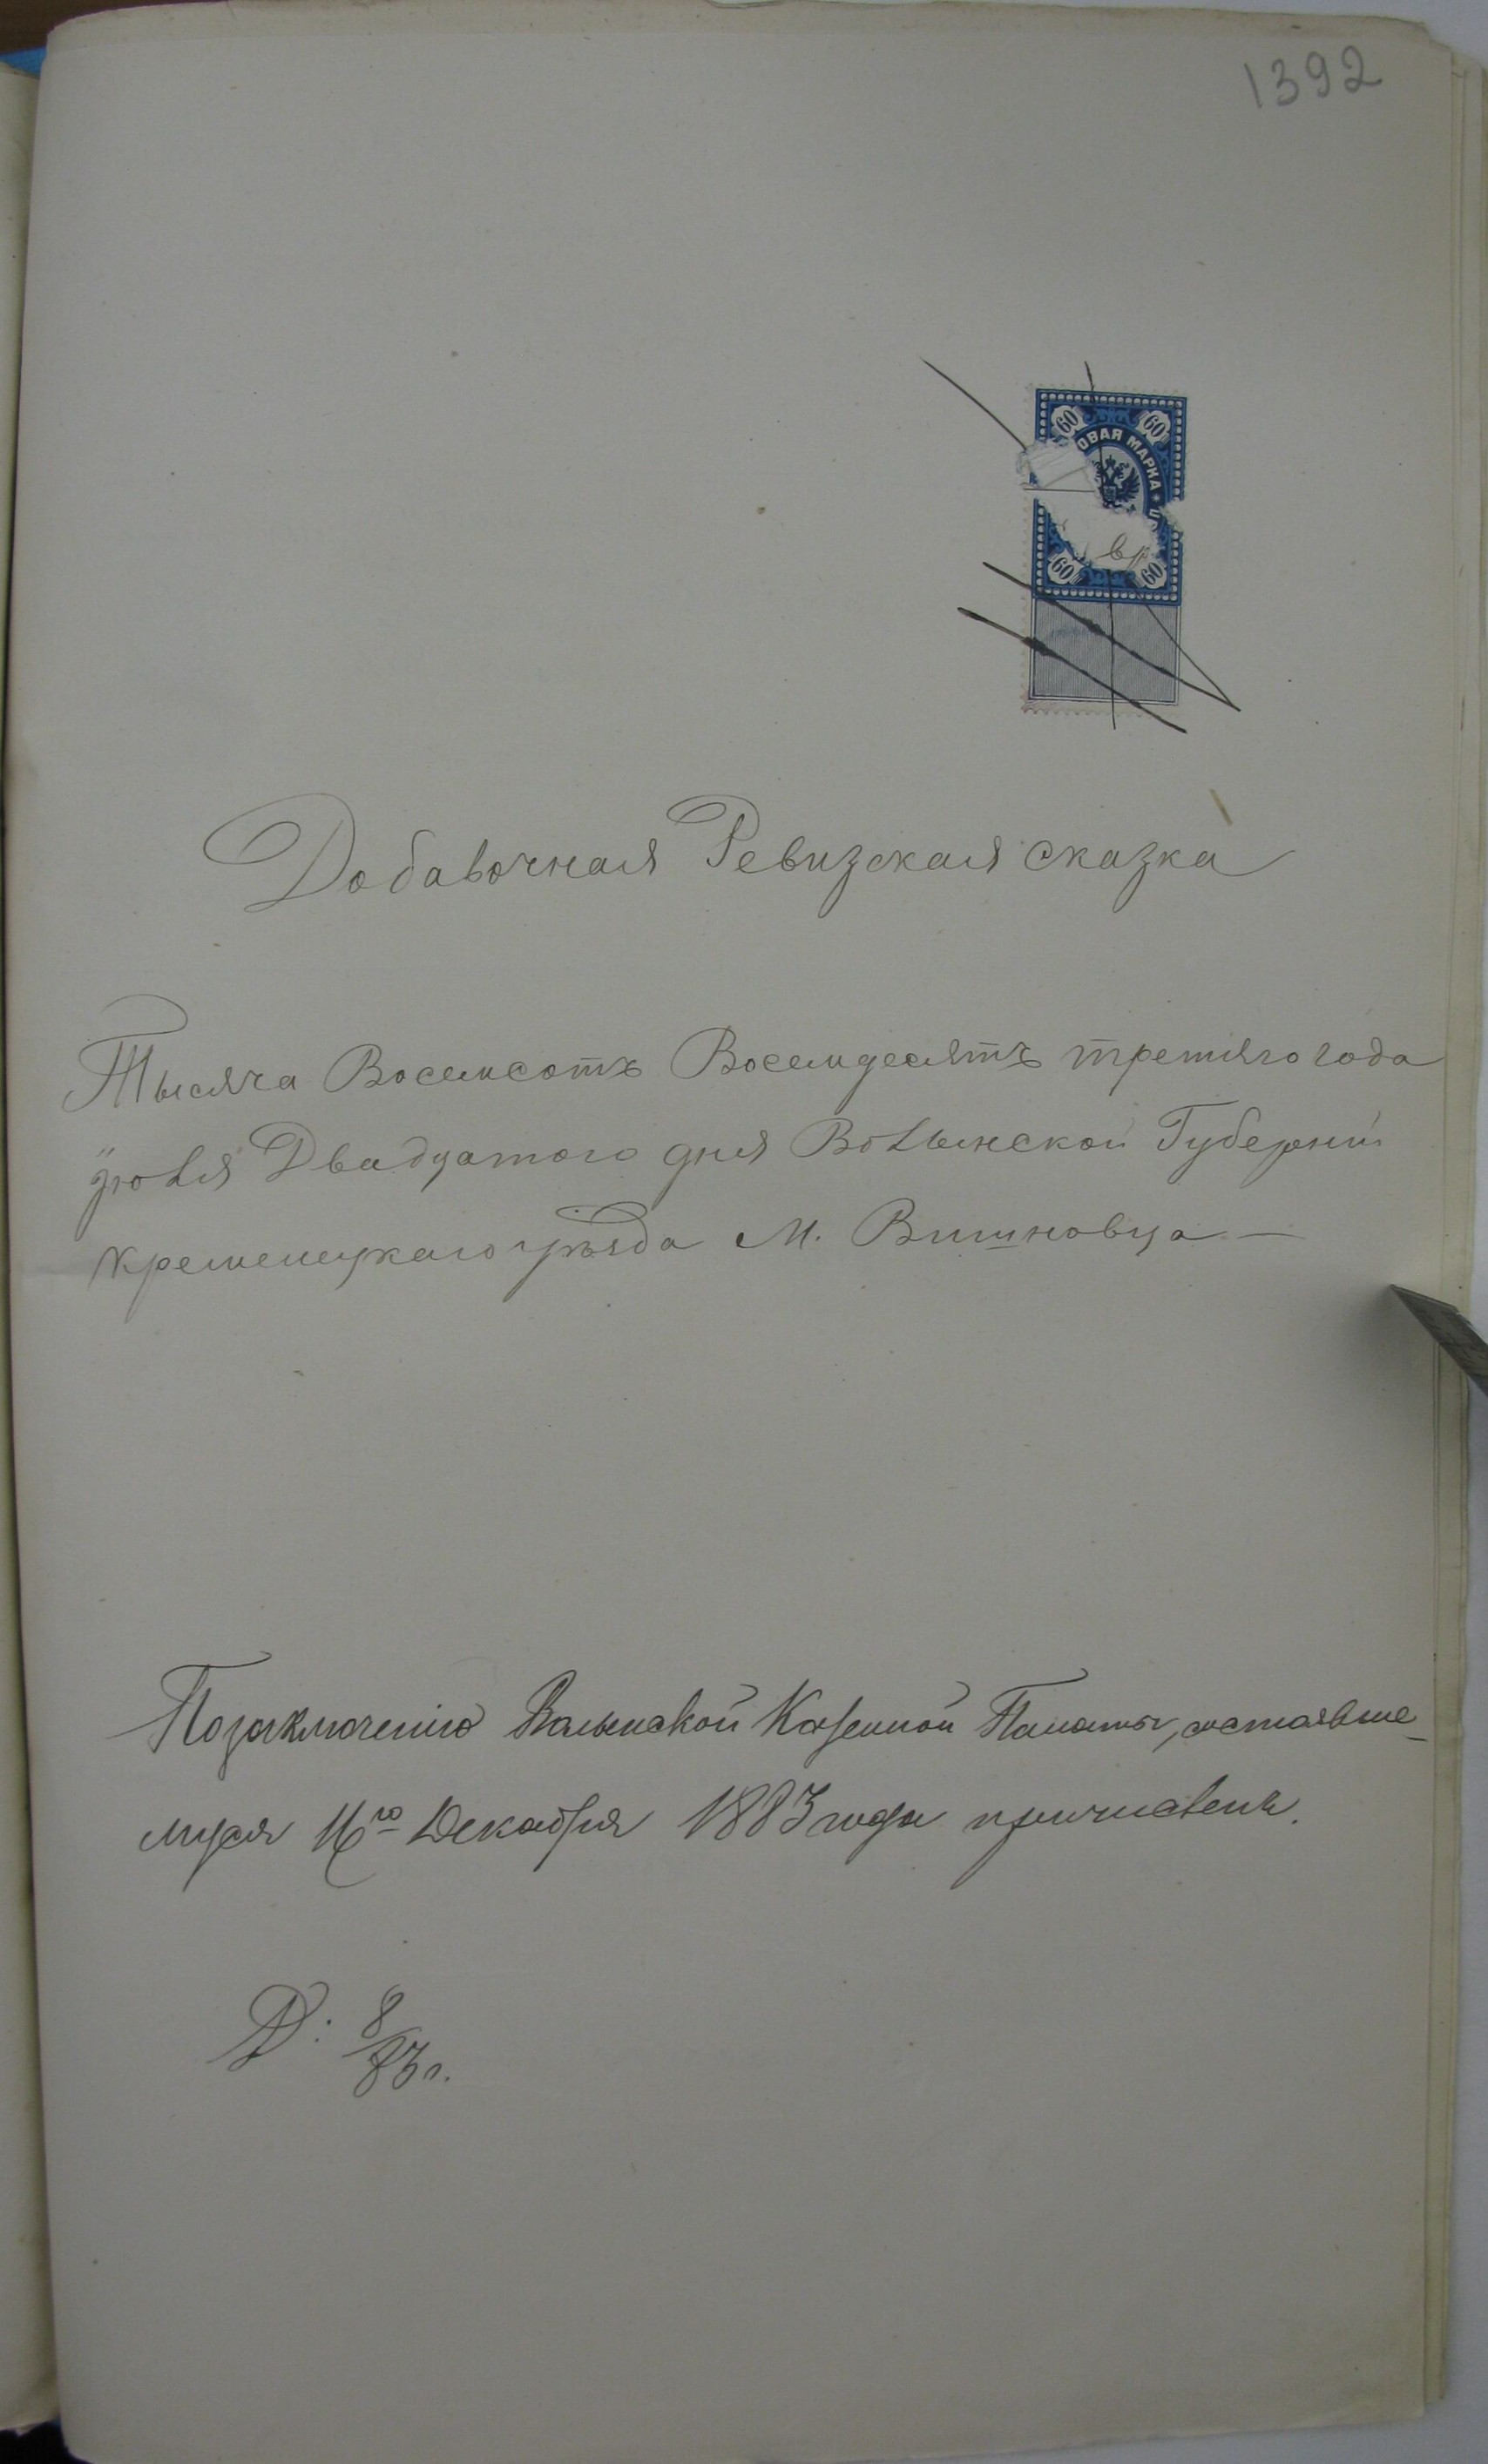 1392
60 60
ОВАЯ МАРКА
60 60
Добавочная Ревизская сказка
Тысяча Восемсотъ Восемдесятъ третяго года
Двадцатого дня Волынской Губернии
Кременецкаго уѣзда М. Вишновца —
По заключению Волынской Казенной Палаты, состоявше-
муся 16го Декабря 1883 года причисленъ.
Д: 8/83 г.